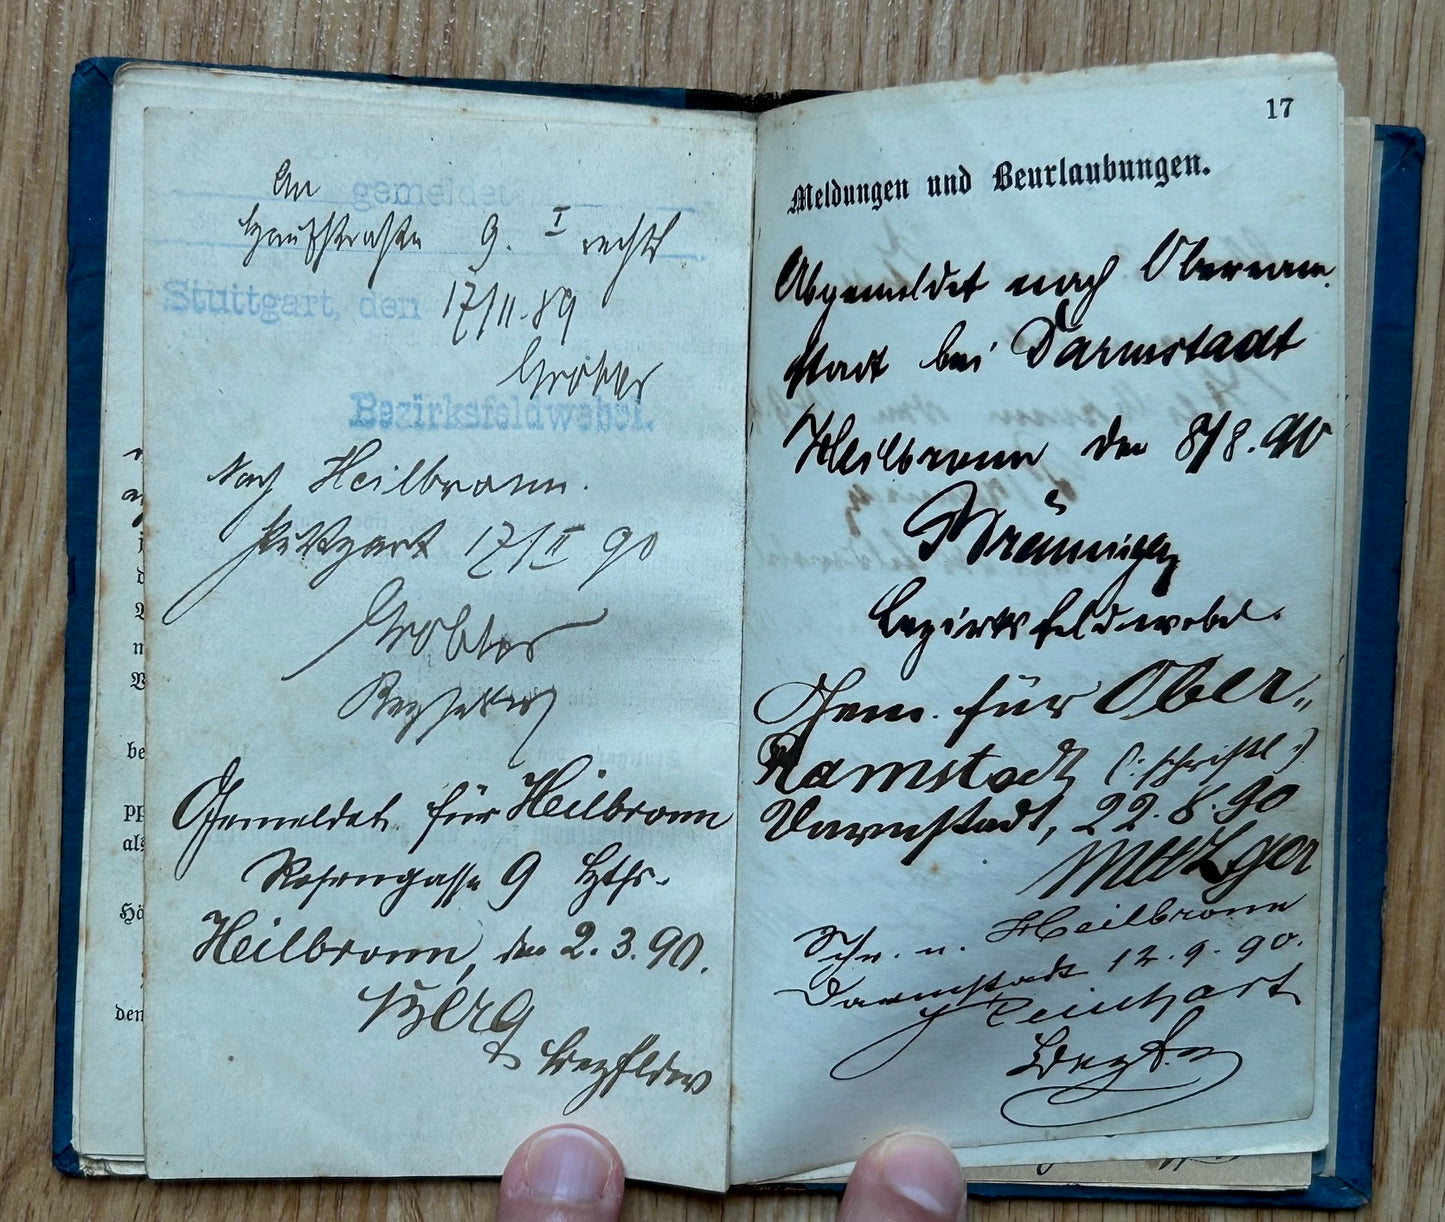 An gemeldet
Hauptstraße 9. I rechts
Stuttgart, den 17/11.89
Gröbler
Bezirksfeldwebel.
Nach Heilbronn.
Stuttgart 17/II 90
Gröbler
Bezfdw
Gemeldet für Heilbronn
Rosengasse 9 Hths.
Heilbronn, den 2.3.90.
Bezfldw
17
Meldungen und Beurlaubungen.
Abgemeldet nach Oberram
stadt bei Darmstadt
Heilbronn den 8/8.90
Bräuninger
Bezirksfeldwebel.
Gem. für Ober-
Ramstadt (: schriftl :)
Darmstadt, 22.8.90
Metzger
n. Heilbronn
Darmstadt 12.9.90.
Reinhart
Bezfw